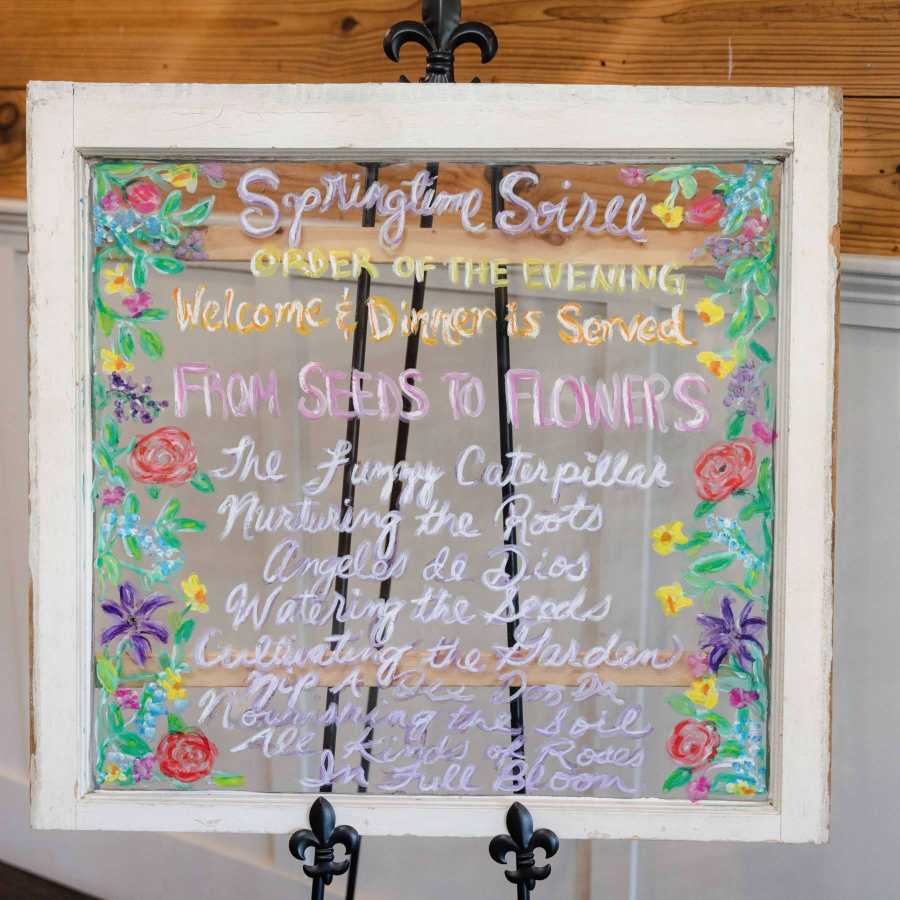 Springtime Soiree
ORDER OF THE EVENING
Welcome & Dinner is Served
FROM SEEDS TO FLOWERS
The Fuzzy Caterpillar
Nurturing the Roots
Angeles de Dios
Watering the Seeds
Cultivating the Garden
Zip A Dee Doo Da
Nourishing the Soil
All Kinds of Roses
In Full Bloom